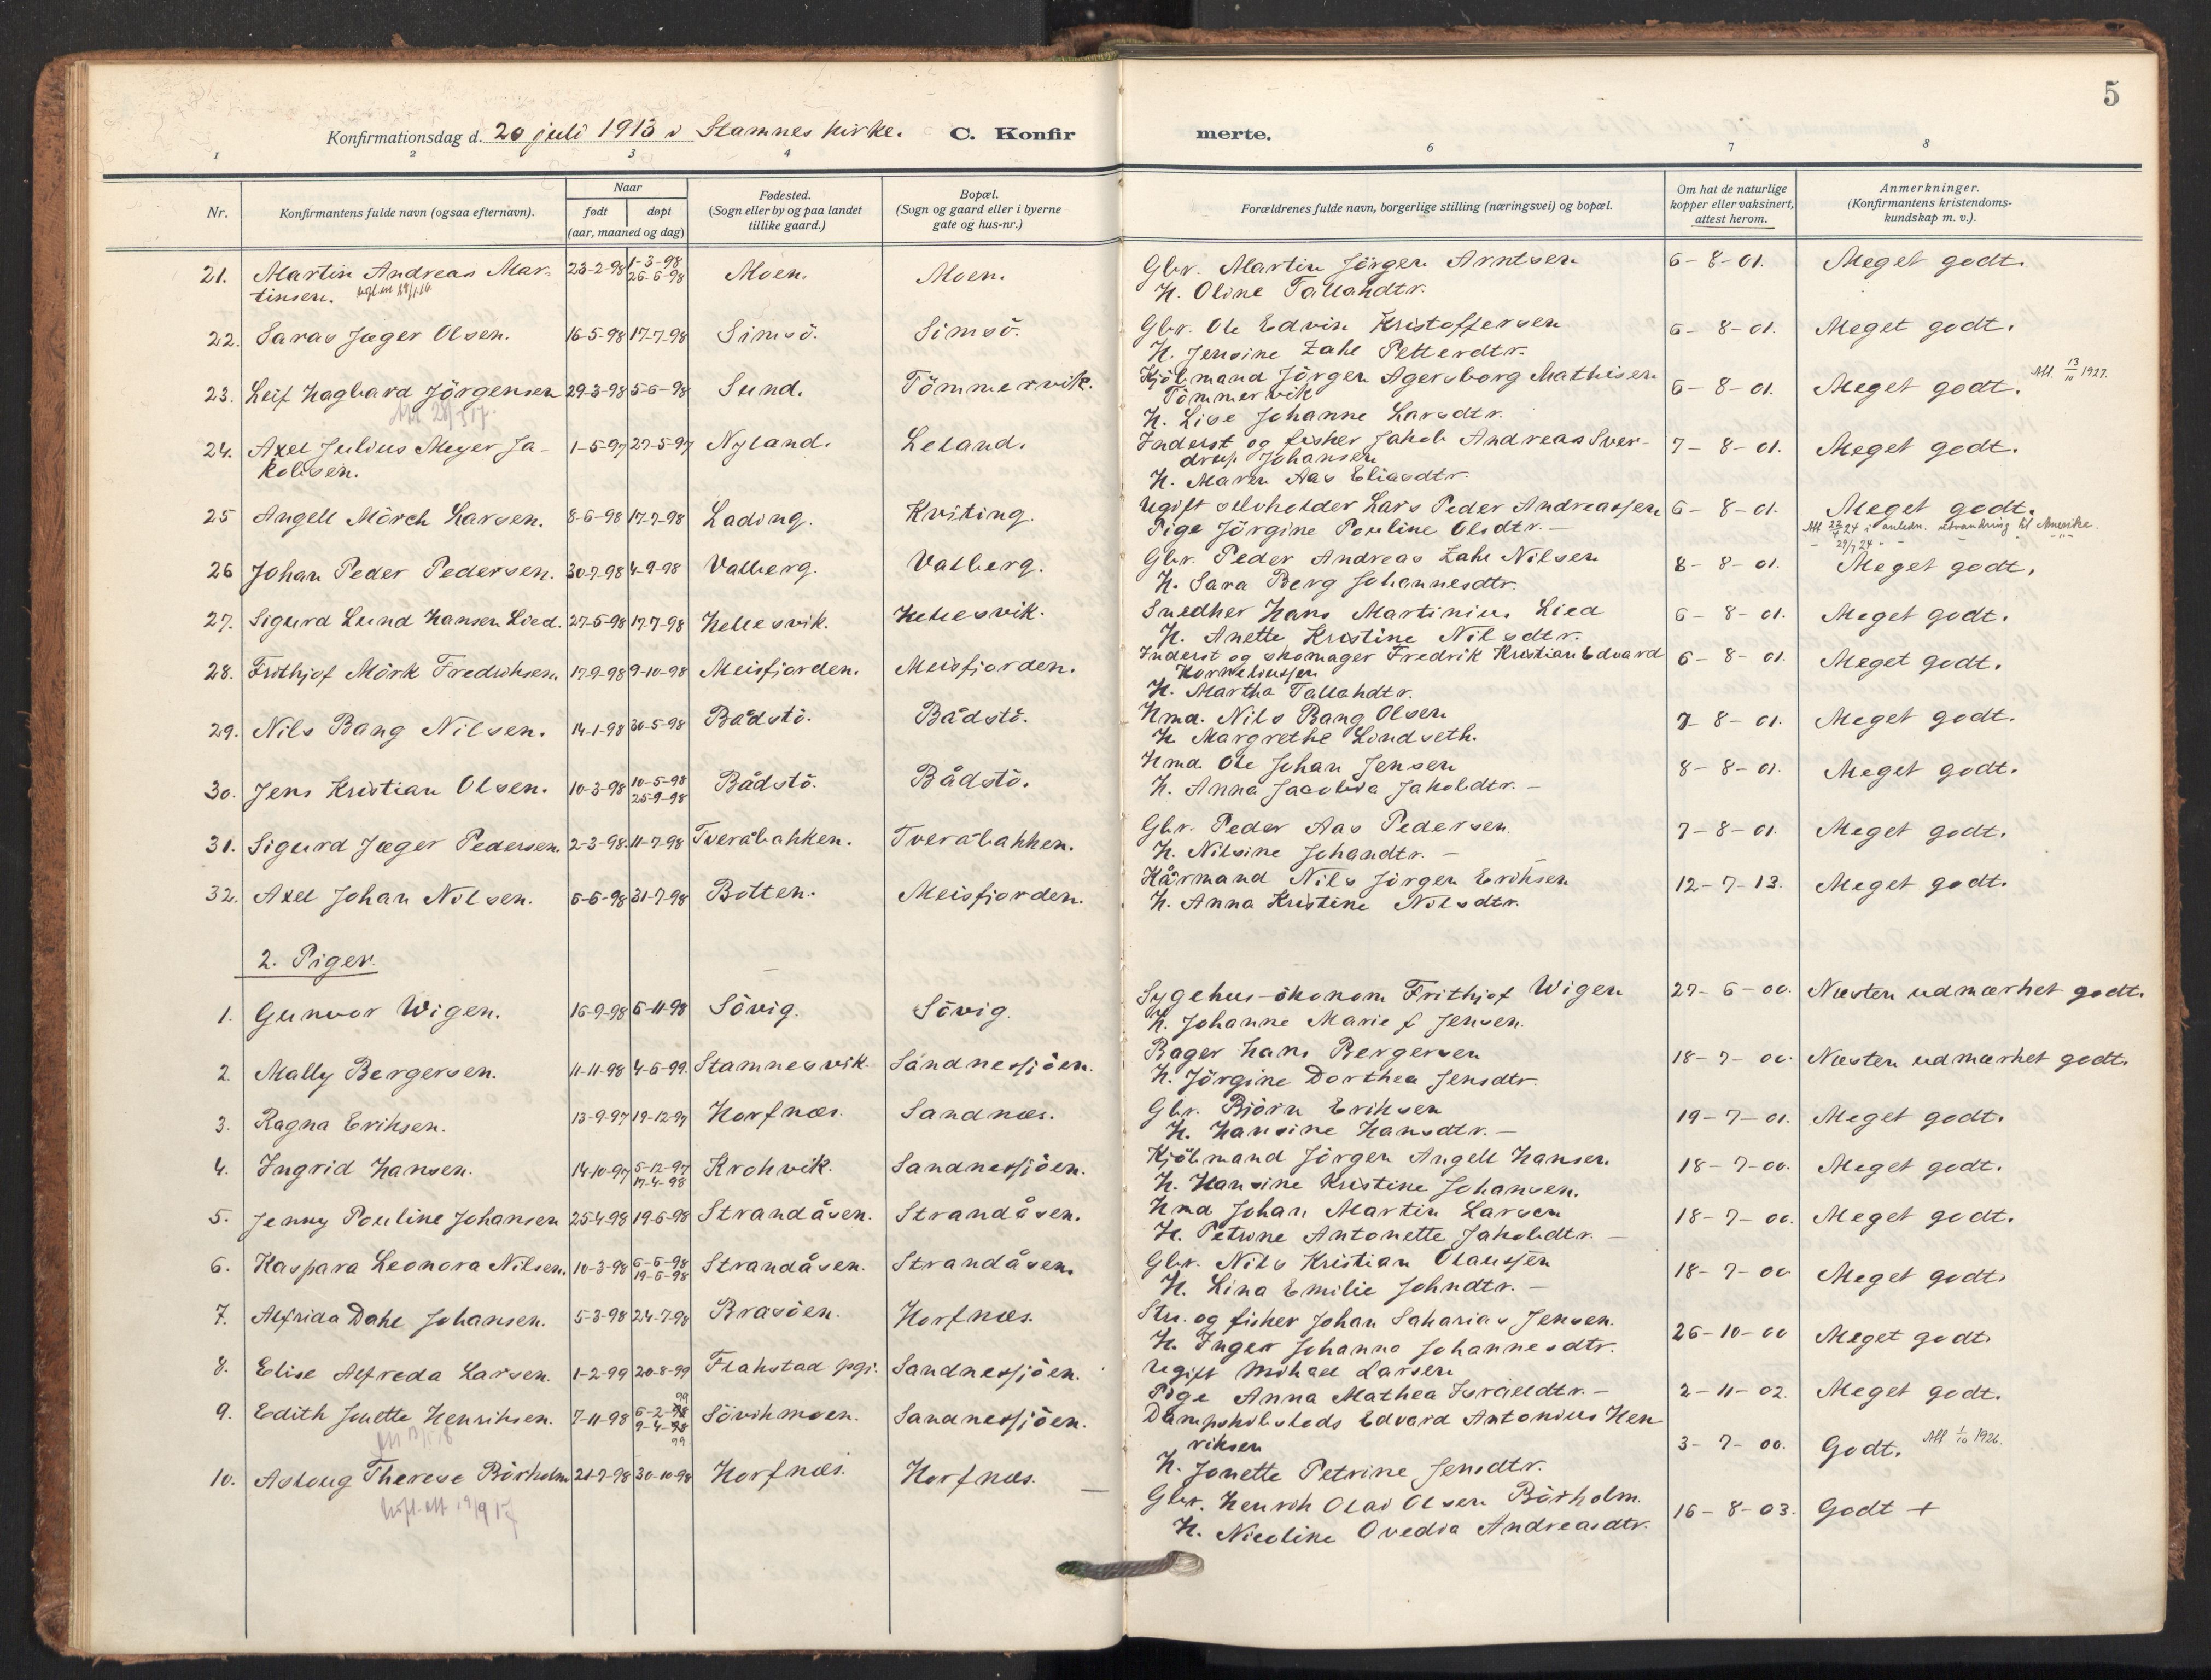 5
Konfirmationsdag d. 20 juli 1913 i Stamnes kirke. C. Konfirmerte.
1 2 3 4 6 7 8
Nr. Konfirmantens fulde navn (ogsaa efternavn). Naar født døpt (aar, maaned og dag) Fødested. (Sogn eller by og paa landet tillike gaard.) Bopæl. (Sogn og gaard eller i byerne gate og hus-nr.) Forældrenes fulde navn, borgerlige stilling (næringsvei) og bopæl. Om hat de naturlige kopper eller vaksinert, attest herom. Anmerkninger. (Konfirmantens kristendomskundskap m. v.).
21. Martin Andreas Mar- 23-2-98 1-3-98 Moen. Moen. Gbr. Martin Jörgen Arntsen 6-8-01. Meget godt.
tinsen. 26-6-98 H. Oline Tallahdtr.
22. Saras Jæger Olsen. 16-5-98 17-7-98 Simsö. Simsö. Gbr. Ole Edvin Kristoffersen 6-8-01. Meget godt.
H. Jensine Zahl Petterdtr.
23. Leif Hagbard Jörgensen 29-3-98 5-6-98 Sund. Tömmervik. Kjöbmand Jörgen Agersborg Mathisen 6-8-01. Meget godt. Att. 13/10 1927.
Tömmervik
H. Lise Johanne Larsdtr.
24. Axel Julius Meyer Ja- 1-5-97 27-5-97 Nyland. Leland. Inderst og fisker Jakob Andreas Sver- 7-8-01. Meget godt.
kobsen. drup Johansen
H. Maren Aas Eliasdtr.
25 Angell Mörch Larsen. 8-6-98 17-7-98 Lading. Kviting. Ugift selvholder Lars Peder Andreassen 6-8-01. Meget godt.
Pige Jörgine Pouline Olsdtr. — Att 23/4 24 i anledn. utvandring til Amerika.
29/7 24
26 Johan Peder Pedersen. 30-7-98 4-9-98 Valberg. Valberg. Gbr. Peder Andreas Zahl Nilsen 8-8-01. Meget godt.
H. Sara Berg Johannesdtr.
27. Sigurd Lund Hansen Lied. 27-5-98 17-7-98 Hellesvik. Hellesvik. Snedker Hans Martinius Lied 6-8-01. Meget godt.
H. Anette Kristine Nilsdtr.
28. Frithjof Mörk Fredriksen. 17-9-98 9-10-98 Meisfjorden. Meisfjorden. Inderst og skomager Fredrik Kristian Edvard 6-8-01. Meget godt.
Korneliussen
H. Martha Tallahdtr.
29. Nils Bang Nilsen. 14-1-98 30-5-98 Bådstö. Bådstö. Hmd. Nils Bang Olsen 7-8-01. Meget godt.
H. Margrethe Lindseth.
30. Jens Kristian Olsen. 10-3-98 10-5-98 Bådstö. Bådstö. Hmd Ole Johan Jensen 8-8-01. Meget godt.
25-9-98 H. Anna Jacobia Jakobdtr. —
31. Sigurd Jæger Pedersen. 2-3-98. 11-7-98 Tveråbakken. Tveråbakken. Gbr. Peder Aas Pedersen. 7-8-01. Meget godt.
H. Nilsine Johandtr. —
32. Axel Johan Nilsen. 6-6-98 31-7-98 Botten. Meisfjorden. Kårmand Nils Jörgen Eriksen 12-7-13. Meget godt.
H. Anna Kristine Nilsdtr.
2. Piger.
1. Gunvor Wigen. 16-9-98 6-11-98 Sövig. Sövig. Sygehus-ökonom Frithjof Wigen 27-6-00. Næsten udmærket godt.
H. Johanne Marie f Jensen.
2. Mally Bergersen. 11-11-98 4-6-99. Stamnesvik. Sandnessjöen. Bager Hans Bergersen 18-7-00. Næsten udmærket godt.
H. Jörgine Dorthea Jensdtr.
3. Ragna Eriksen. 13-9-97 19-12-97 Horfnæs. Sandnæs. Gbr. Björn Eriksen 19-7-01. Meget godt.
H. Hansine Hansdtr. —
4. Ingrid Hansen. 14-10-97 5-12-97 Krohvik. Sandnessjöen. Kjöbmand Jörgen Angell Hansen 18-7-00. Meget godt.
17-4-98 H. Hansine Kristine Johansen.
5. Jenny Pouline Johansen 25-4-98 19-6-98 Strandåsen. Strandåsen. Hmd Johan Martin Larsen 18-7-00. Meget godt.
H. Petrine Antonette Jakobdtr. —
6. Kaspara Leonora Nilsen. 10-3-98 6-6-98 Strandåsen. Strandåsen. Gbr. Nils Kristian Olaussen 18-7-00 Meget godt.
19-6-98 H. Lina Emilie Johndtr. —
7. Alfrida Dahl Johansen. 5-3-98 24-7-98 Brasöen. Horfnæs. Str. og fisker Johan Saharias Jensen. 26-10-00 Meget godt.
H. Inger Johanna Johannesdtr.
8. Elise Alfreda Larsen. 1-2-99 20-8-99 Flakstad pgj. Sandnessjöen. Ugift Mikael Larsen 2-11-02. Meget godt.
Pige Anna Mathea Israeldtr. —
9. Edith Jonette Henriksen. 7-11-98 6-2-98 99 Sövikmoen. Sandnessjöen. Dampskibslods Edvard Antonius Hen 3-7-00. Godt. Att 1/10 1926.
9-4-98 99 riksen
H. Jonette Petrine Jensdtr.
10. Aslaug Therese Börholm 21-7-98 30-10-98 Horfnæs. Horfnæs. Gbr. Henrik Olai Olsen Börholm. 16-8-03. Godt +
H. Nicoline Ovedia Andreasdtr.